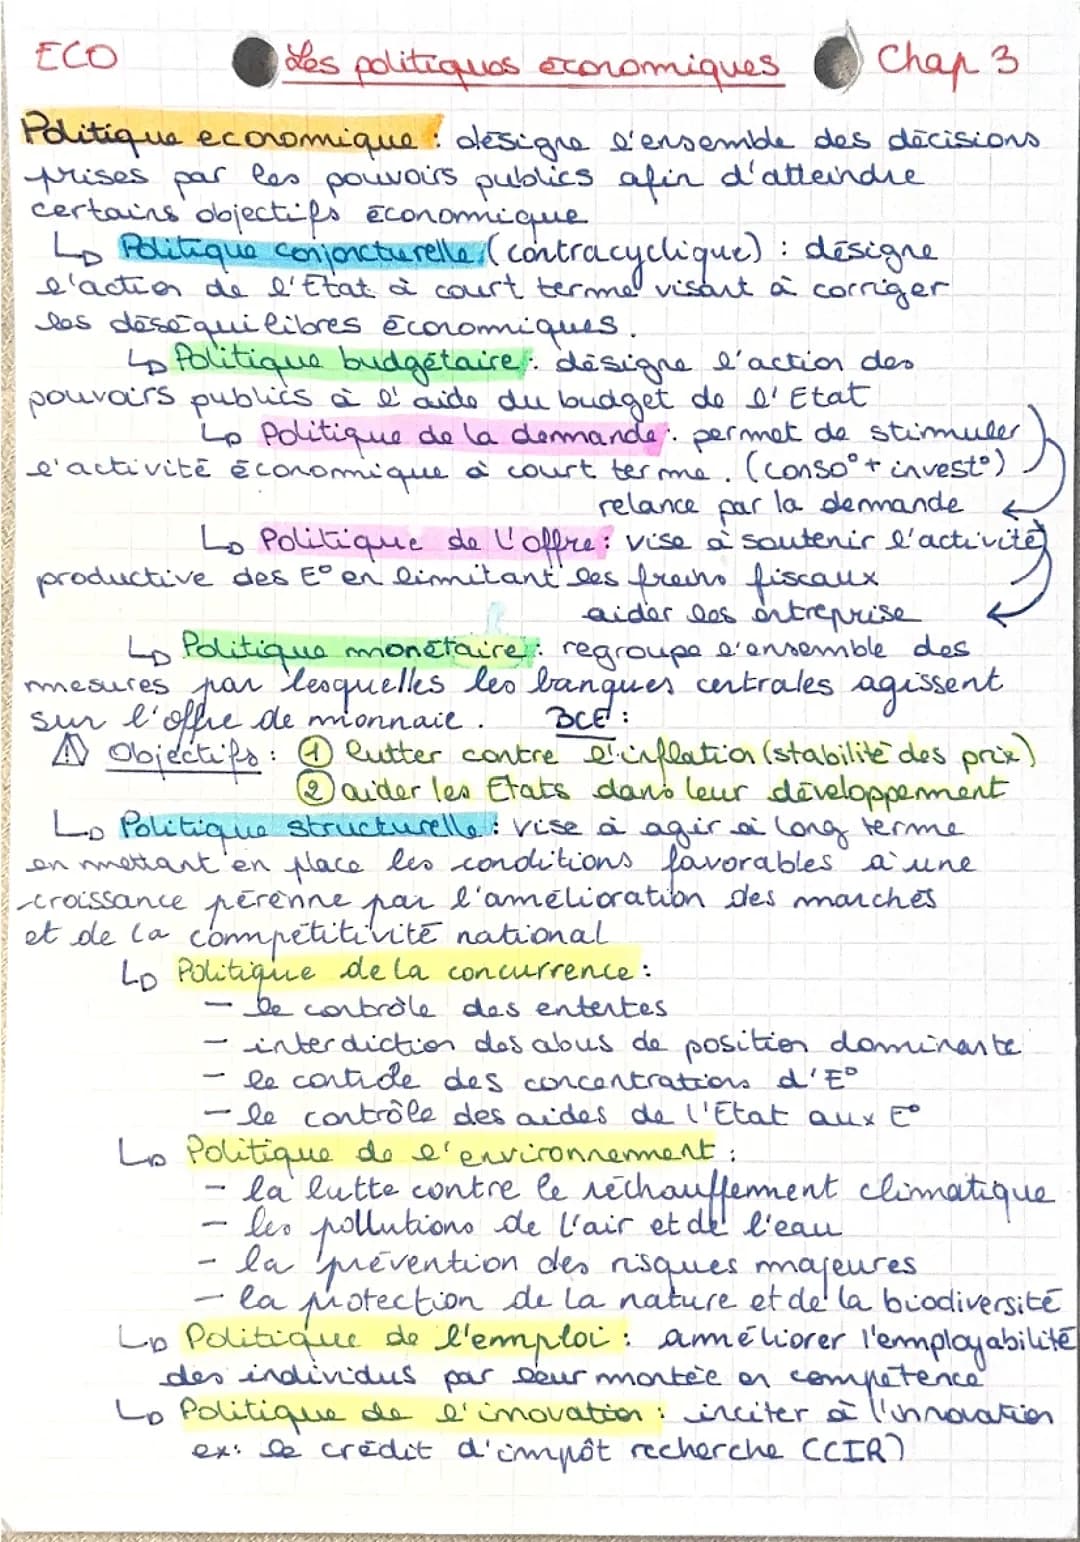 ECO Les politiques economiques Chap 3
Politique economique : désigne l'ensemble des décisions
prises par les pouvoirs publics afin d'atteindre
certains objectifs économique
↳ Politique conjoncturelle (contracyclique) : désigne
l'action de l'Etat à court terme visant à corriger
les déséquilibres économiques.
↳ Politique budgétaire : désigne l'action des
pouvoirs publics à l'aide du budget de l'Etat
↳ Politique de la demande : permet de stimuler
l'activité économique à court terme. (conso° + invest°)
relance par la demande
↳ Politique de l'offre : vise à soutenir l'activité
productive des E° en limitant les freins fiscaux
aider les entreprise
↳ Politique monétaire : regroupe l'ensemble des
mesures par lesquelles les banques centrales agissent
sur l'offre de monnaie. BCE :
⚠ Objectifs : ① lutter contre l'inflation (stabilité des prix)
② aider les Etats dans leur développement
↳ Politique structurelle : vise à agir à long terme
en mettant en place les conditions favorables à une
croissance pérenne par l'amélioration des marchés
et de la compétitivité national
↳ Politique de la concurrence :
- le contrôle des ententes
- interdiction des abus de position dominante
- le contrôle des concentrations d'E°
- le contrôle des aides de l'Etat aux E°
↳ Politique de l'environnement :
- la lutte contre le réchauffement climatique
- les pollutions de l'air et de l'eau
- la prévention des risques majeures
- la protection de la nature et de la biodiversité
↳ Politique de l'emploi : améliorer l'employabilité
des individus par leur montée en compétence
↳ Politique de l'inovation : inciter à l'innovation
ex : le crédit d'impôt recherche (CIR)